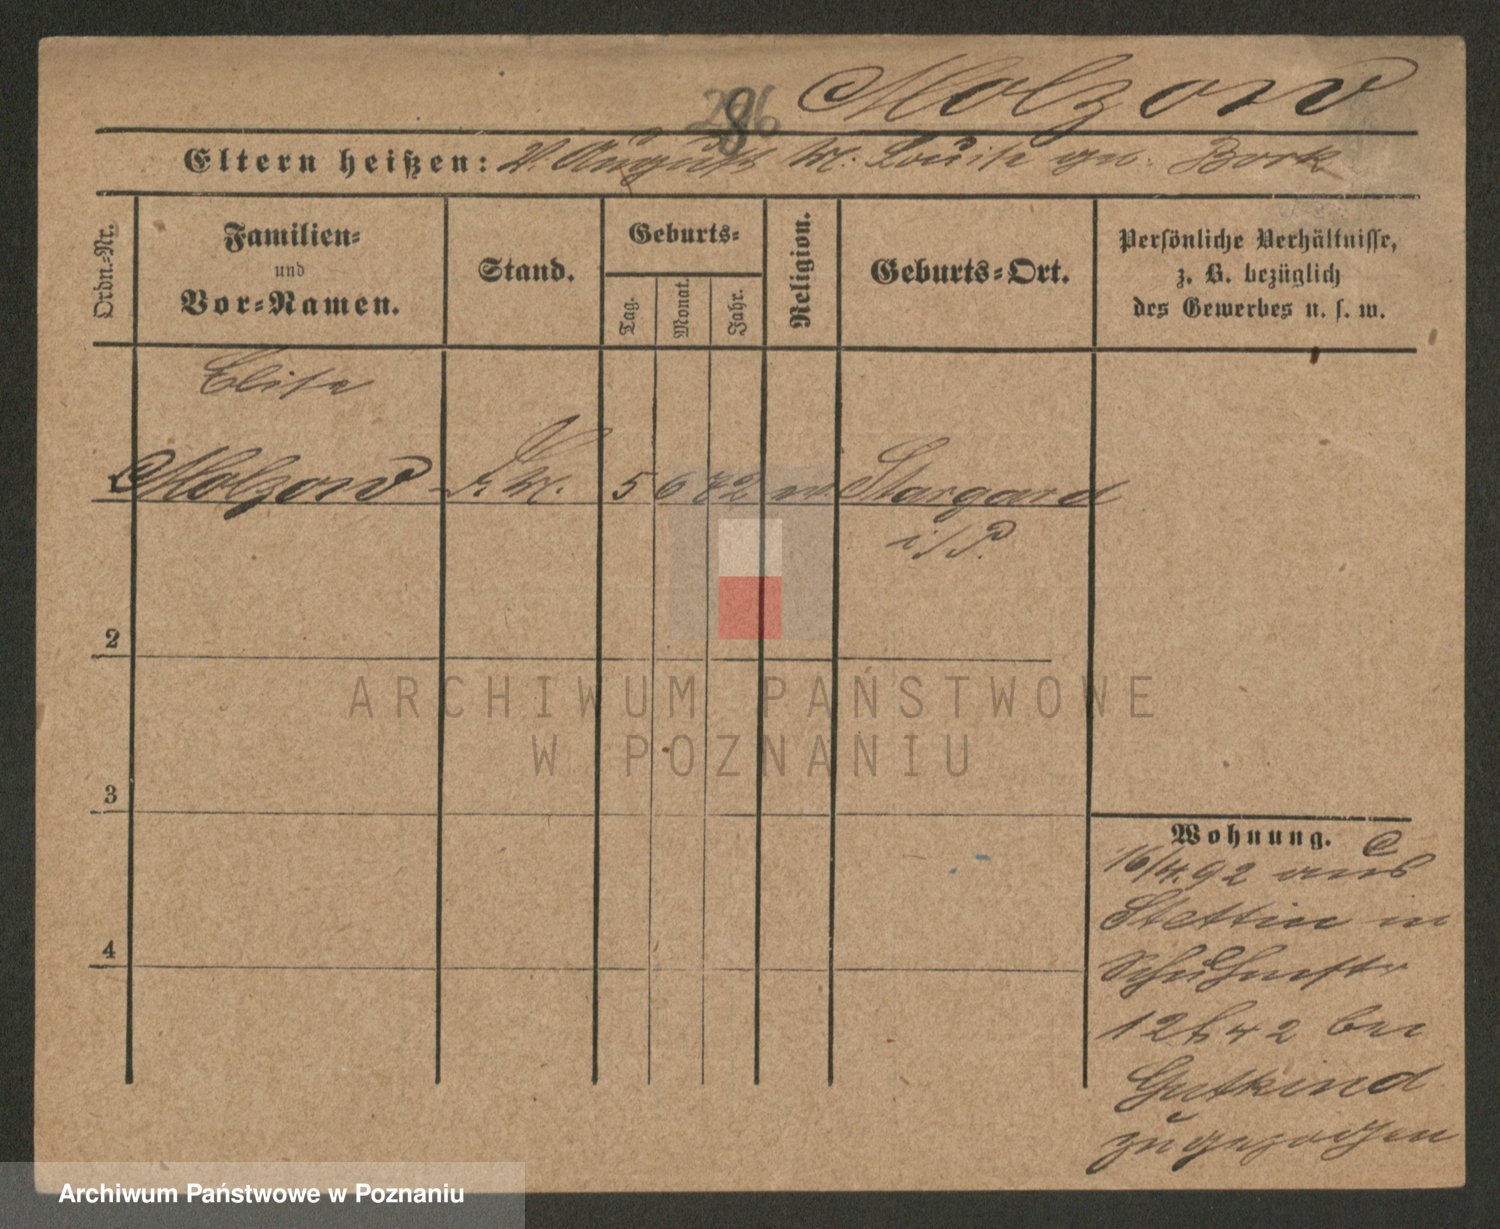 Molzow
8
Eltern heißen: V. August M. Louise geb. Bork
Ordn.-Nr.
Familien=
und
Vor=Namen.
Stand.
Geburts=
Tag.
Monat.
Jahr.
Religion.
Geburts=Ort.
Persönliche Verhältnisse,
z. B. bezüglich
des Gewerbes u. s. w.
Elise
Molzow
5 6 72
Stargard
i/P.
2
3
4
Wohnung.
16/4. 92 aus
Stettin in
Schuhmstr
12 42 bei
Gutkind
zugezogen
ARCHIWUM PAŃSTWOWE
W POZNANIU
Archiwum Państwowe w Poznaniu